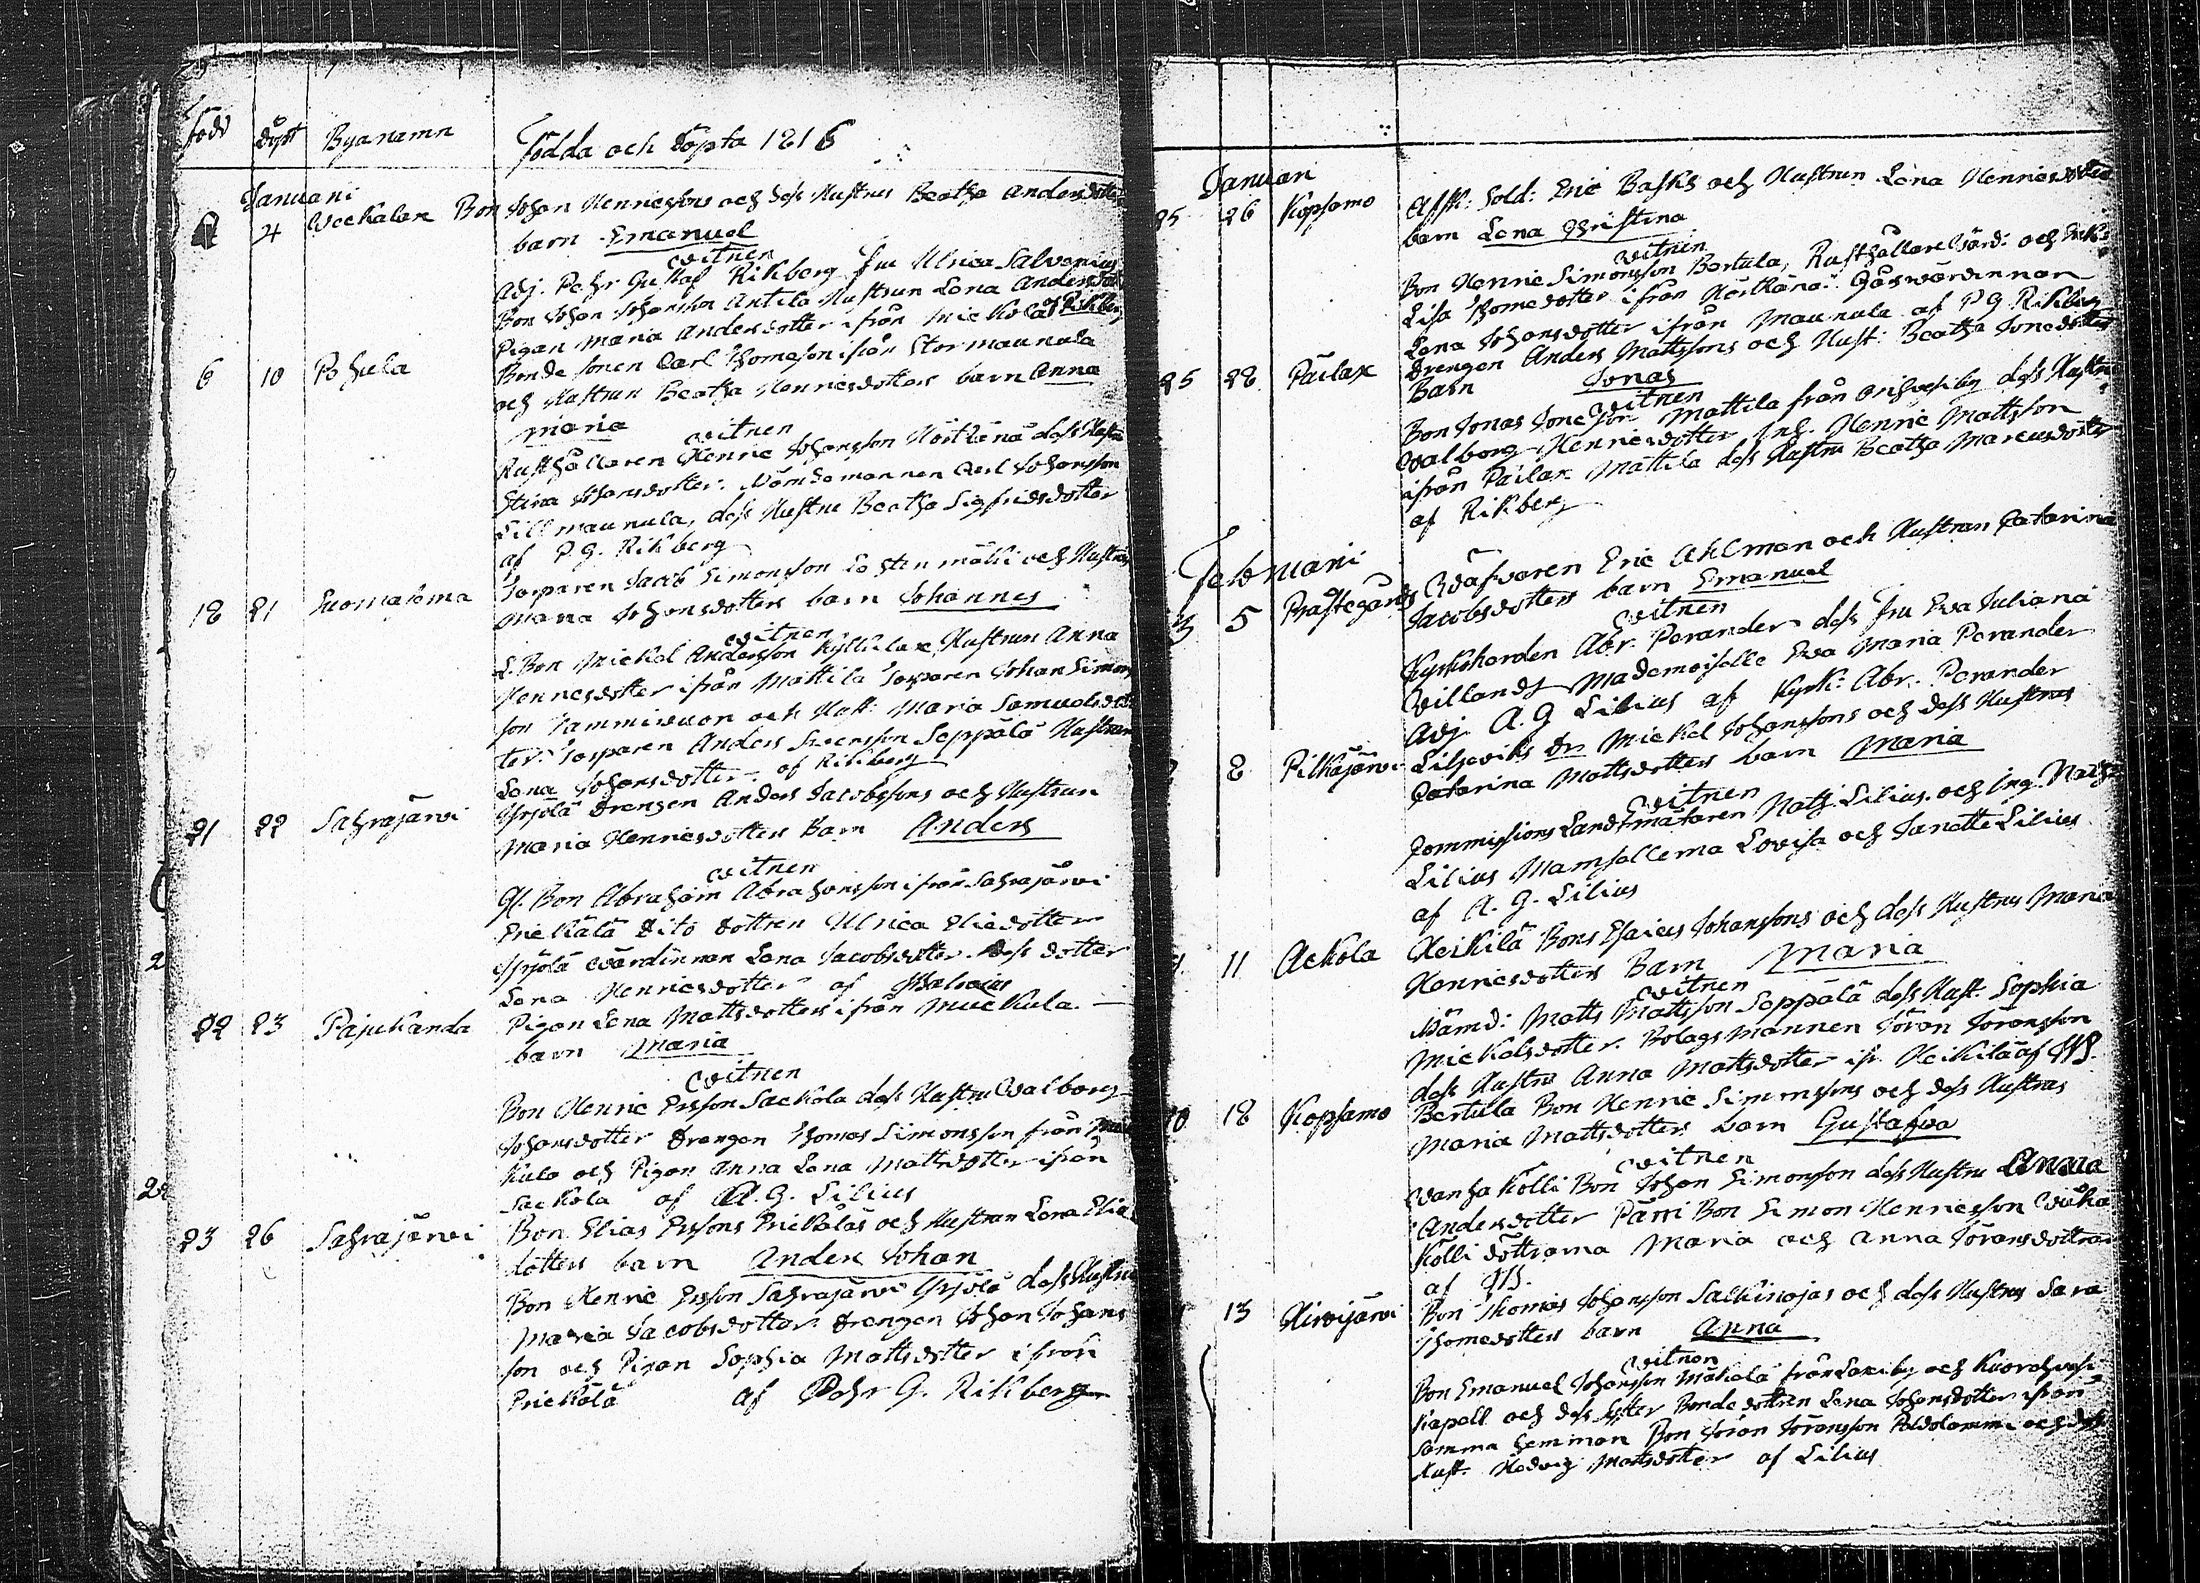 född döpt Byanamn Födda och Döpta 1816
Januari
4 Weckalax Bon Johan Henricssons och dess Hustrus Beatha Andersdotters
barn Emanuel
witnen
Adj. Pehr Gustaf Rikberg Fru Ulrica Salvenius
Bon Johan Johansson Antila Hustrun Lena Andersdotter
Pigan Maria Andersdotter ifrån Mickola af Rikberg
6 10 Pohula Bonde sonen Carl Thomasson ifrån Stor maunula
och Hustrun Beatha Henricsdotters barn Anna
Maria
witnen
Rusthållaren Henric Johansson Hörtkänä dess Hustru
Stina Johansdotter. Nämdemannen Carl Johansson
Lill maunula, dess Hustru Beatha Sigfridsdotter
af P. G. Rikberg
18 21 Suomalema Torparen Jacob Simonsson mäki och Hustrus
Maria Johansdotters barn Johannes
witnen
S. Bon Mickel Andersson Kyllulax, Hustrun Anna
Henricsdotter ifrån Mattila Torparen Johan Simons
son Tammiwuon och Hust: Maria Samuelsdot
ter: Torparen Anders Svensson Seppälä Hustrun
Lena Johansdotter. af Rikberg
21 22 Sahrajärvi Yrjölä Drengen Anders Jacobssons och Hustrun
Maria Henricsdotters Barn Anders
witnen
Gl. Bon Abraham Abrahamsson ifrån Sahrajärvi
Erickälä Dito dottren Ulrica Eliedotter
Yrjölä wärdinnan Lena Jacobsdotter. dess dotter
Lena Henricsdotter af
22 23 Pajukanda Pigan Lena Mattsdotters ifrån Muckula
barn Maria
witnen
Bon Henric Ersson Sackola dess Hustru Walborg
Johansdotter Drengen Thomas Simonsson från
kula och Pigan Anna Lena Mattsdotter ifrån
Sackola af A. G. Lilius
23 26 Sahrajärvi Bon Elias Erssons Erickäläs och Hustrun Lena Elia
dotters barn Anders Johan
Bon Henric Ersson Sahrajärvi Yrjölä dess Hustru
Maria Jacobsdotter: Drengen Johan Johans
son och Pigan Sophia Mattsdotter ifrån
Erickälä af Pehr G. Rikberg
Januari
25 26 Kopsamo Afsk: Sold: Eric Basks och Hustrun Lena Henricsdotters
barn Lena Christina
witnen
Bon Henric Simonsson Bertula, Rusthållare
Lisa Thomedotter ifrån Hörtkänä: Gåswärdinnan
Lena Johansdotter ifrån Maunula af P G Rikberg
25 28 Pailax Drengen Anders Mattssons och Hust: Beatha Jonedotters
Barn Jonas
witnen
Bon Jonas Jonesson Mattila från Orihvesi by dess Hustru
Walborg Henricsdotter Ing. Henric Mattsson
ifrån Pailax Mattila dess Hustru Beatha Marcusdotter
af Rikberg
Februarii
3 5 Prästegårds Eric Ahlman och Hustrun Catarina
Jacobsdotters barn Emanuel
witnen
Kyrkoherden Abr. Perander dess Fru Eva Juliana
Willandt Mademoiselle Eva Maria Perander
Adj. A. G Lilius af Kyrk: Abr: Perander
8 Pilkäjärvi Liljeviks Dr Mickel Johanssons och dess Hustrus
Catarina Mattsdotters barn Maria
witnen
Commissions Landtmätaren Nath. Lilius. och Ing. Nath
Lilius Mamsellerna Lovisa och Janette Lilius
af A. G. Lilius
11 Ackola Heikilä Bons Esaias Johanssons och dess Hustrus Maria
Henricsdotters Barn Maria
witnen
Nämd: Matts Mattsson Seppälä dess Hust. Sophia
Mickelsdotter. Bolagsmannen Jöran Jöransson
dess Hustru Anna Mattsdotter ifr. Heikilä af
18 Kopsamo Bertula Bon Henric Simonssons och dess Hustrus
Maria Mattsdotters barn Gustafva
witnen
Wanha Kölli Bon Johan Simonsson dess Hustru Anna
Andersdotter Parri Bon Simon Henricsson
Kölli döttrarna Maria och Anna Jöransdöttrar
af
13 Hirvijärvi Bon Thomas Johansson Salkinojas och dess Hustrus Sara
Thomedotters barn Anna
witnen
Bon Emanuel Johansson Mäkelä från by och
Kapell och dess syster Bondedottren Lena Johansdotter ifrån
samma hemman Bon Jöran Jöransson och dess
Hust. Hedvig Mattsdotter af Lilius